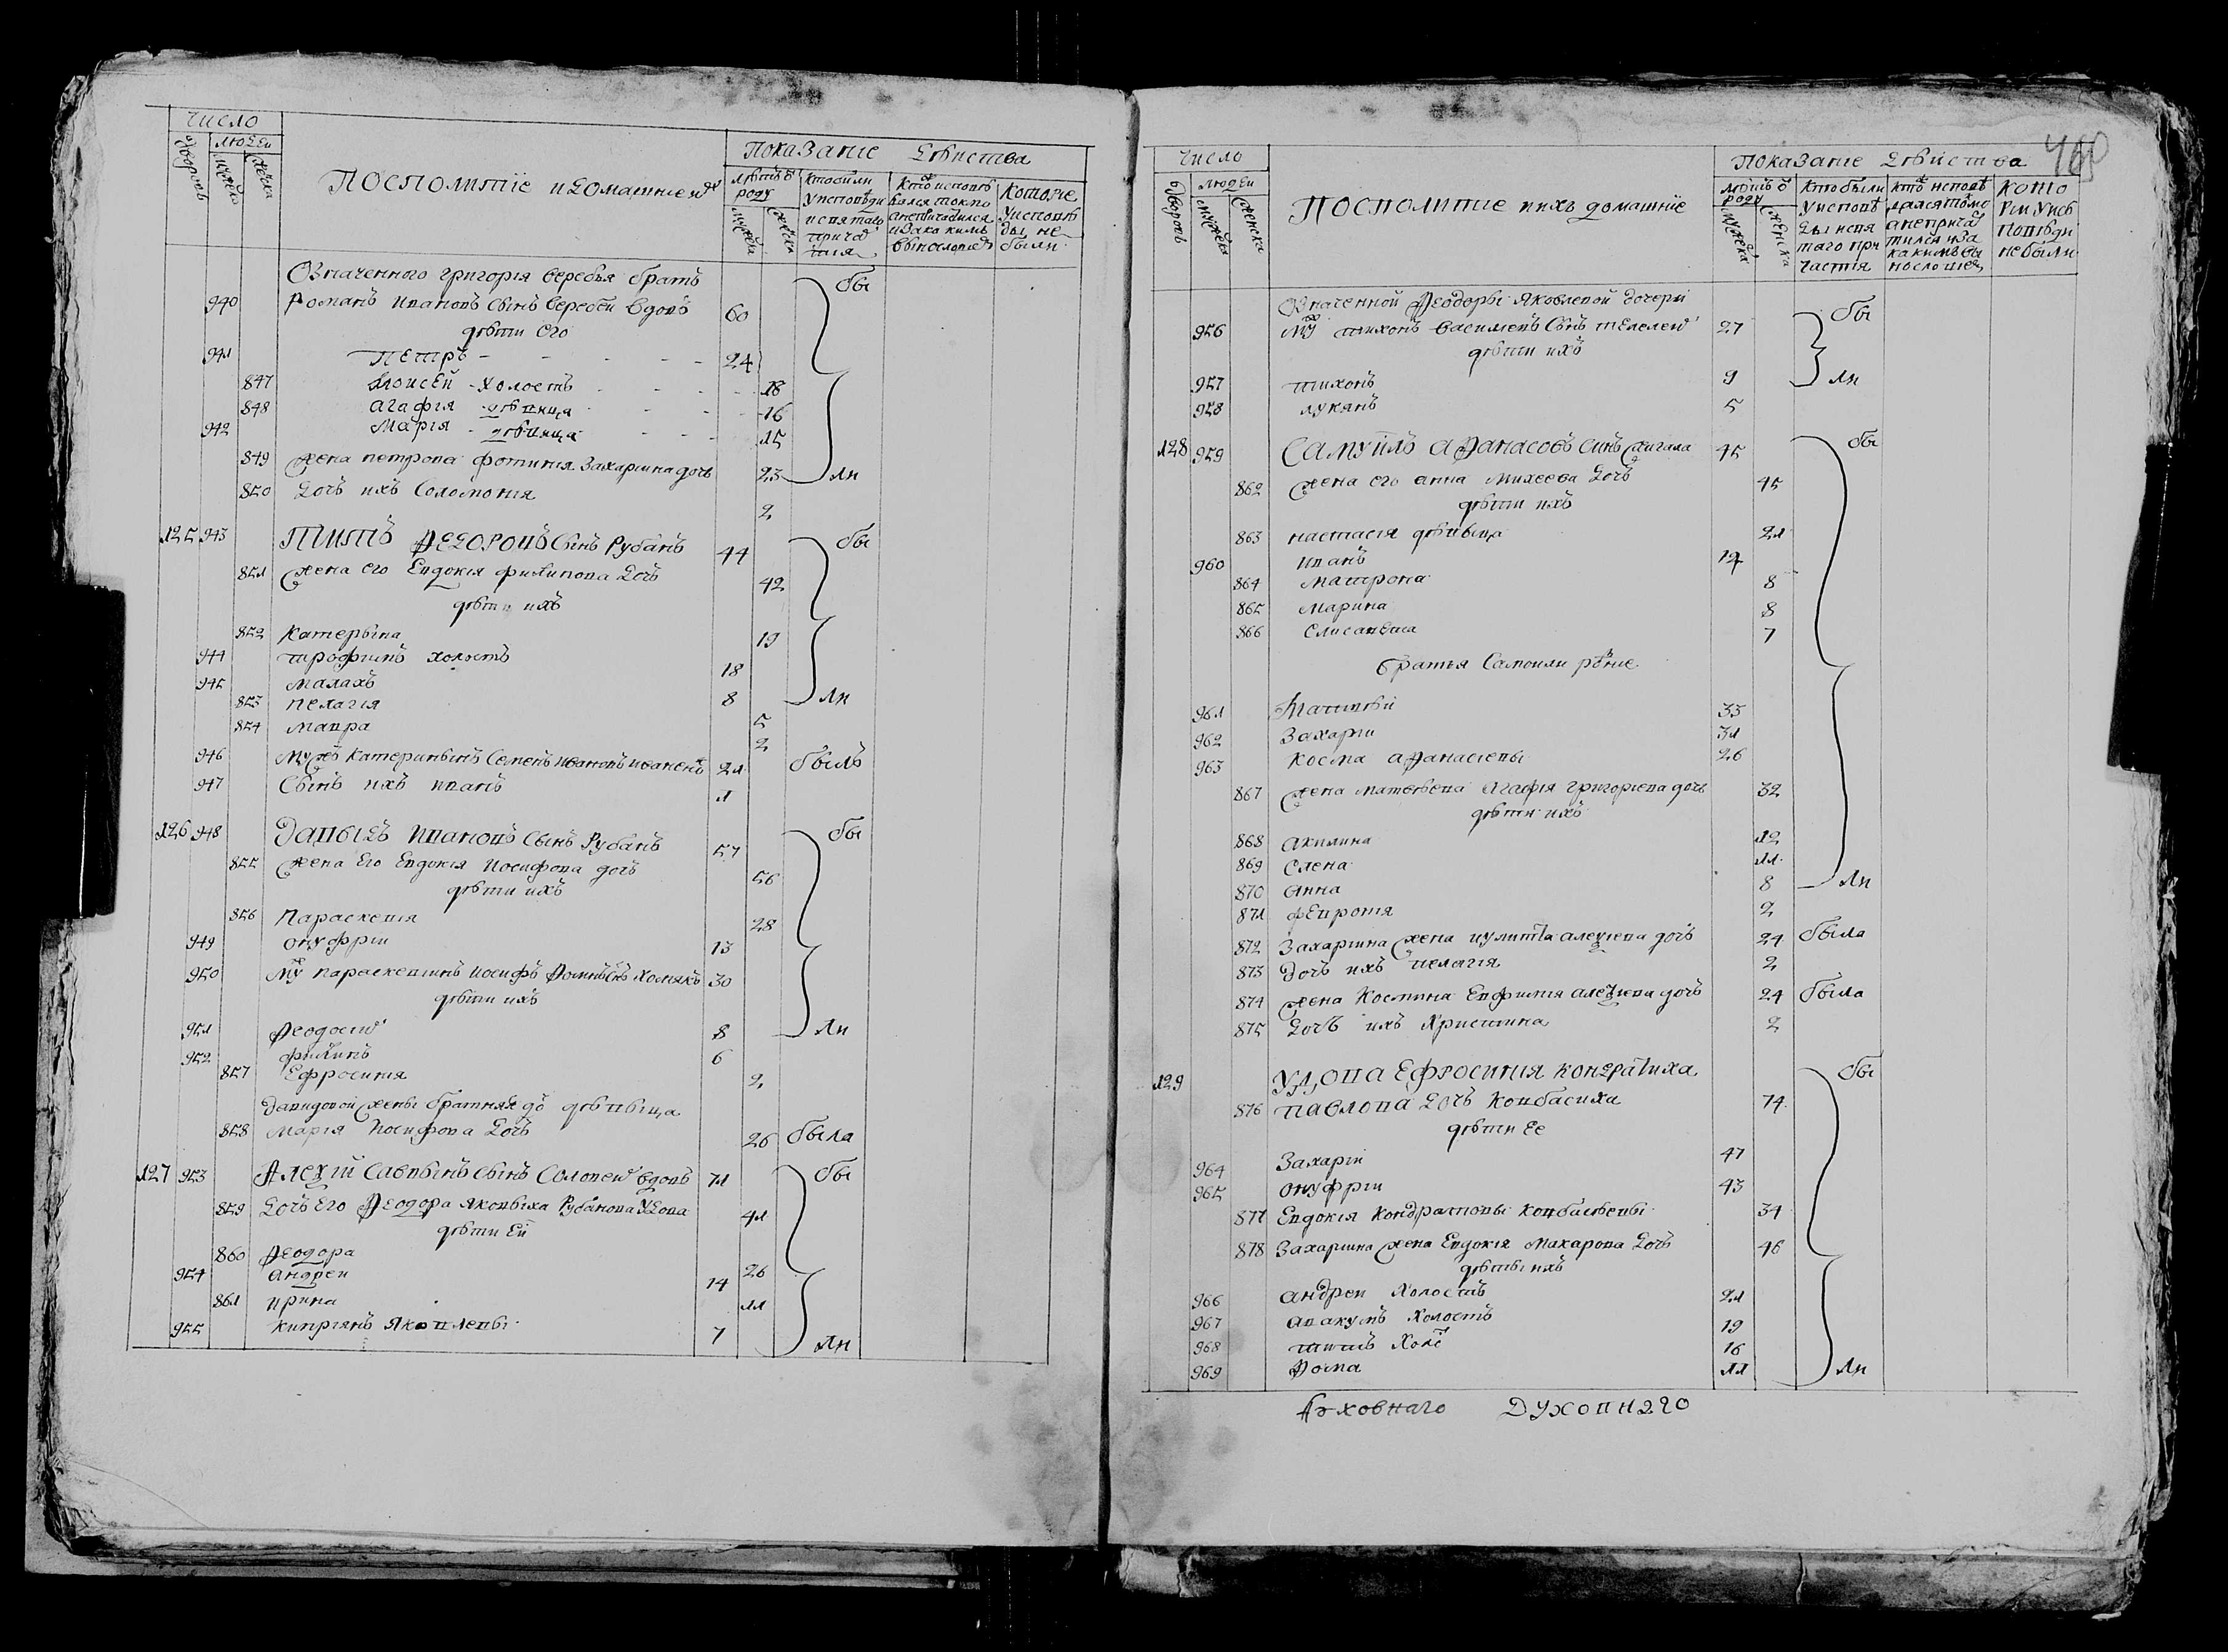 Число
Дворовъ
Людеи
мужеска
женска
Посполитіе и домашніе ихъ
Показаніе дѣиства
Лѣтъ ѿ роду
мужеска
женска
Кто были у исповѣди и святаго причастія
Кто исповѣдался токмо а непричастился и за какимъ винословіемъ
Которые у исповѣди не были
Означенного григорія веребья братъ
940 Романъ Ивановъ сынъ веребеи вдовъ 60 бы
дѣти его
941 Петръ 24
847 Моисей холостъ 18
848 Агафія дѣвица 16
942 Марія дѣвица 15
849 Жена петрова фотинія Захаріина дочь 23 ли
850 Дочь ихъ Соломонія 2
125 943 Титъ Ѳедоровъ сынъ Рубанъ 44 бы
851 Жена его Евдокія филипова дочь 42
дѣти ихъ
852 Катерына 19
944 трофимъ холостъ 18
945 Малахъ 8 ли
853 пелагія 5
854 мавра 2
946 Мужъ Катеринынъ Семенъ Ивановъ 21 былъ
947 Сынъ ихъ иванъ 1
126 948 Давыдъ Ивановъ сынъ Рубанъ 57 бы
855 Жена Его Евдокія Иосифова дочь 56
дѣти ихъ
856 Параскевія 28
949 онуфріи 13
950 Му параскевіинъ иосифъ Ѳоминъ снъ хомякъ 30
дѣти ихъ
951 Ѳеодосій 8 ли
952 филипъ 6
857 Ефросинія 2
давидовой жены братняя до дѣвыца
858 Марія Иосифова дочь 26 была
127 953 Алеѯій Саввынъ сынъ Соловей вдовъ 71 бы
859 Дочь его Ѳеодора яковыха Рубанова удова 41
дѣти Ей
860 Ѳеодора 26
954 андреи 14
861 ирина 11
955 кипріянъ яковлевы 7 ли
460
Число
Дворовъ
Людеи
мужеска
женска
Посполитіе и ихъ домашніе
Показаніе дѣиства
Лѣтъ ѿ роду
мужеска
женска
Кто были у исповѣды и святаго причастія
Кто исповѣдался токмо а непричастился и за какимъ вынословіемъ
Которіи у исповѣди не были
Означенной Ѳеодоры яковлевой дочери
956 Му тихонъ василіевъ снъ 27 бы
дѣти ихъ
957 тихонъ 9 ли
958 лукянъ 5
128 959 Самуйлъ аѲанасовъ синъ 45 бы
862 Жена его анна михеева дочь 45
дѣти ихъ
863 настасія дѣвыца 21
960 иванъ 14
864 матрона 8
865 марина 8
866 елисавета 7
братья Самоили рѡніе
961 Матвѣй 33
962 Захаріи 31
963 Косма аѲанасіевы 26
867 Жена матвѣева агафія григоріева дочь 32
дѣти ихъ
868 акилина 12
869 елена 11
870 анна 8 ли
871 февронія 2
872 Захаріина жена иулита алеѯіева дочь 24 была
873 дочь ихъ пелагія 2
874 Жена Космина Евфимія алеѯіева дочь 24 была
875 Дочь ихъ Христина 2
129 Удова Ефросинія Кондратиха бы
876 павлова дочь Ковбасиха 74
дѣти ее
964 Захаріи 47
965 онуфріи 43
877 Евдокія Кондратовы 34
878 Захаріина жена Евдокія Макарова дочь 46
дѣты ихъ
966 андреи холостъ 21
967 авакумъ холостъ 19
968 титъ холо 16
969 Ѳома 11 ли
Духовнаго Духовнаго